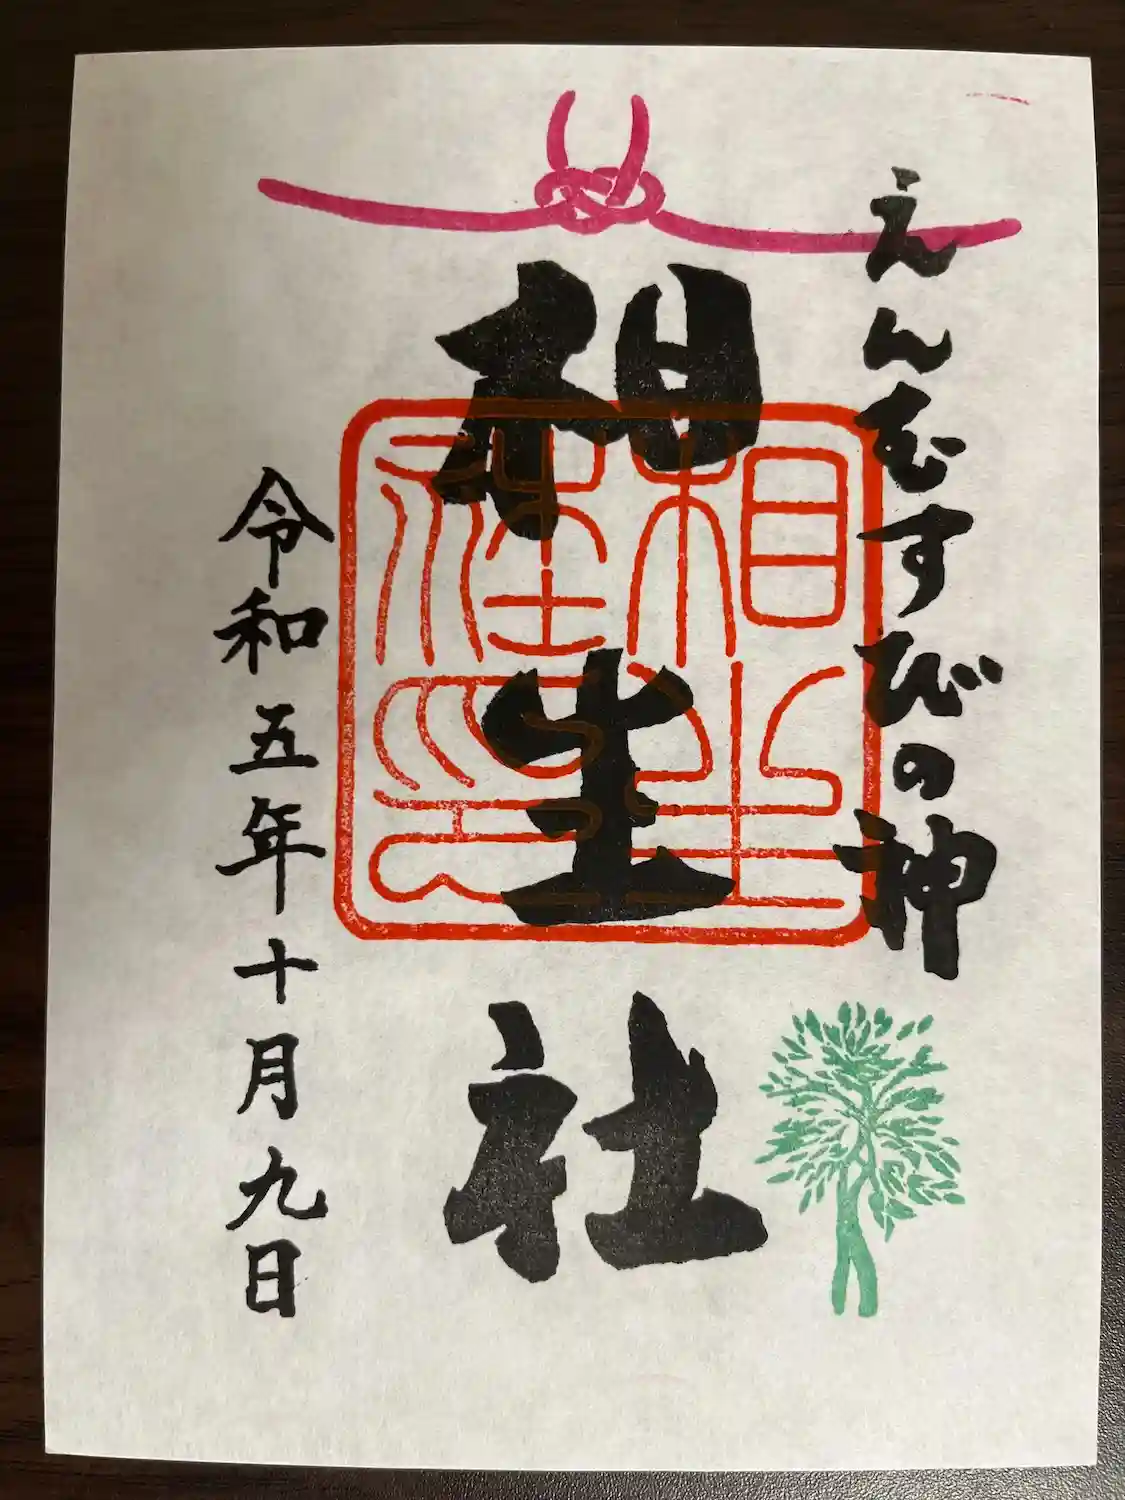 えんむすびの神
相生社
相生社印
令和五年十月九日